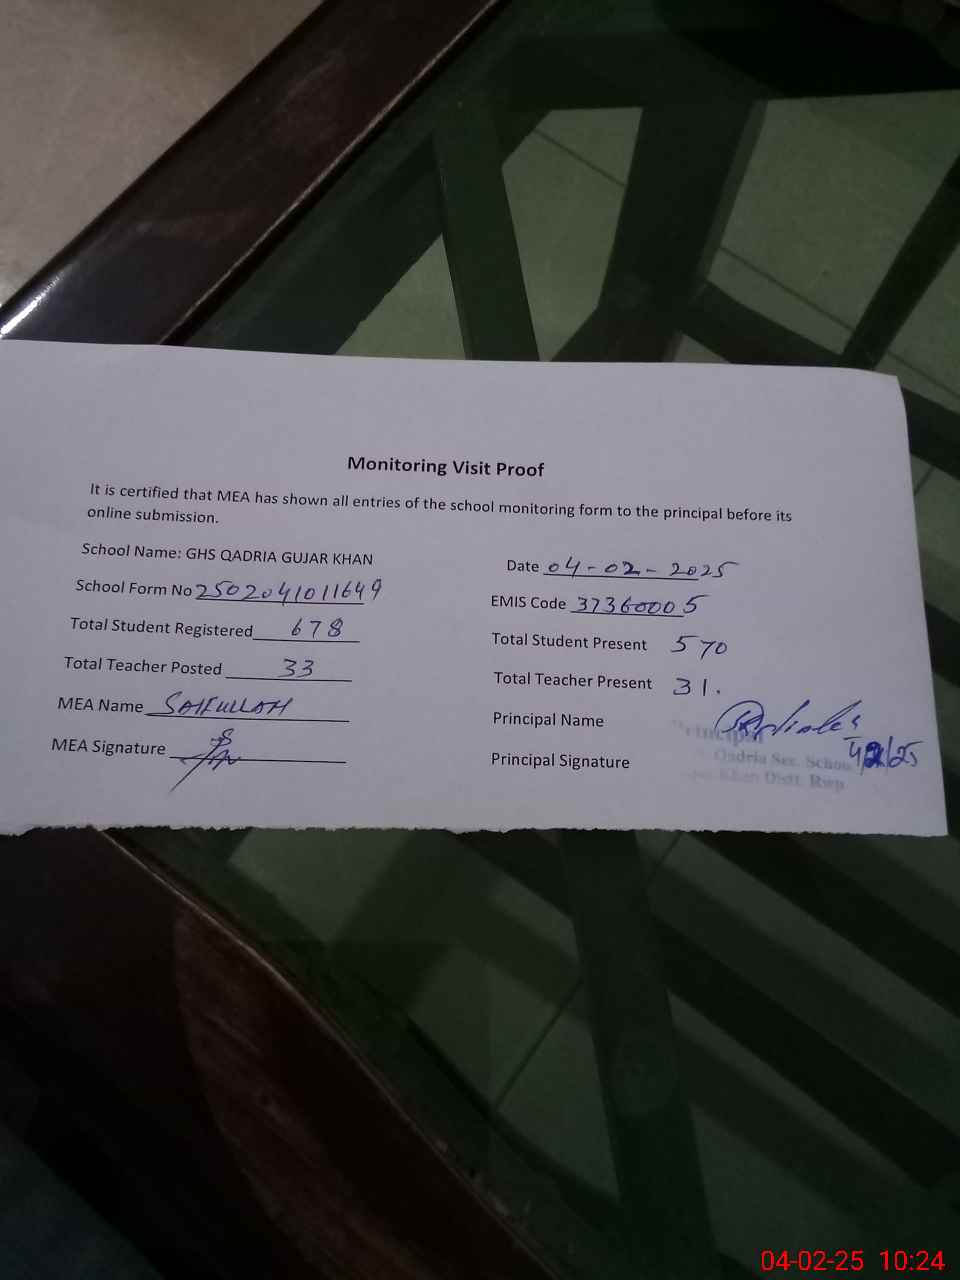 Monitoring Visit Proof
It is certified that MEA has shown all entries of the school monitoring form to the principal before its
online submission.
School Name: GHS QADRIA GUJAR KHAN
Date 04-02-2025
School Form No 2502041011649
EMIS Code 37360005
Total Student Registered 678
Total Student Present 570
Total Teacher Posted 33
Total Teacher Present 31.
MEA Name SAIFULLAH
Principal Name
MEA Signature
Principal Signature
Principal
Qadria Sec. School
Khan Distt. Rwp
04-02-25 10:24